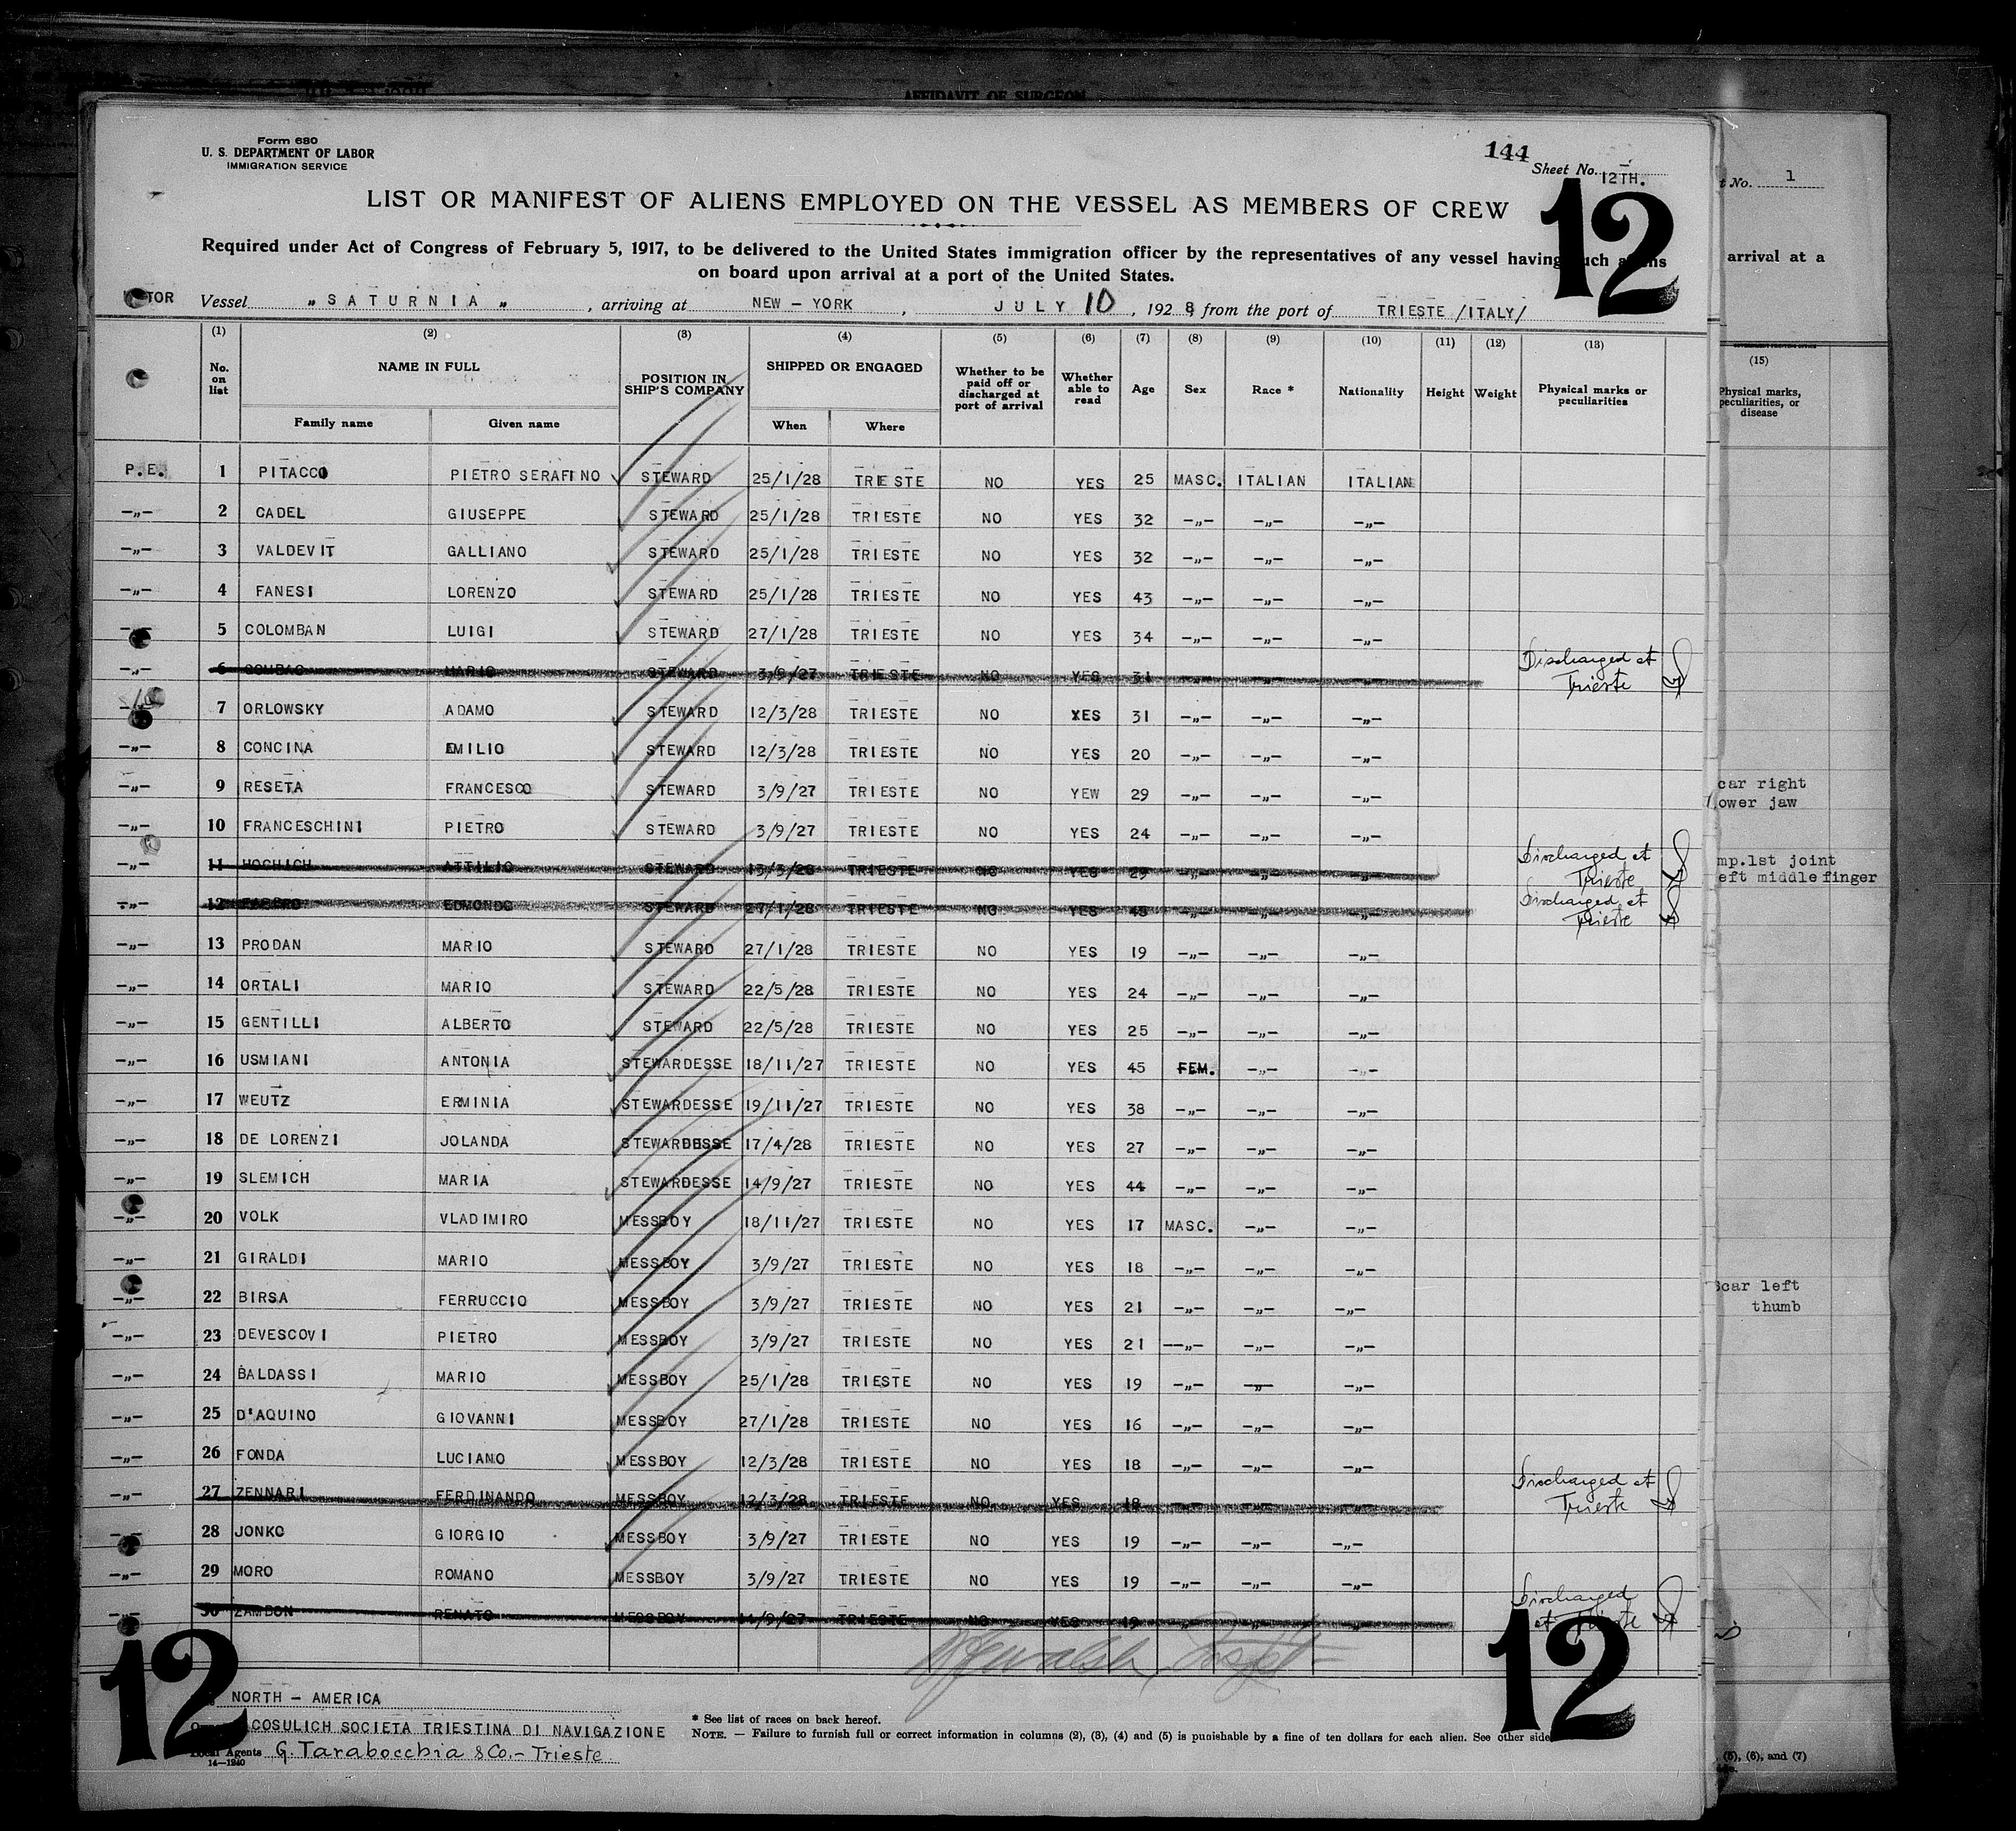 AFFIDAVIT OF SURGEON
Form 680
U. S. DEPARTMENT OF LABOR
IMMIGRATION SERVICE
144
Sheet No. 12TH.
12
LIST OR MANIFEST OF ALIENS EMPLOYED ON THE VESSEL AS MEMBERS OF CREW
Required under Act of Congress of February 5, 1917, to be delivered to the United States immigration officer by the representatives of any vessel having such aliens
on board upon arrival at a port of the United States.
Vessel „ SATURNIA „ , arriving at NEW - YORK , JULY 10 , 1928, from the port of TRIESTE /ITALY/
(1) (2) (3) (4) (5) (6) (7) (8) (9) (10) (11) (12) (13)
No. on list NAME IN FULL POSITION IN SHIP'S COMPANY SHIPPED OR ENGAGED Whether to be paid off or discharged at port of arrival Whether able to read Age Sex Race * Nationality Height Weight Physical marks or peculiarities
Family name Given name When Where
P.E. 1 PITACCO PIETRO SERAFINO STEWARD 25/1/28 TRIESTE NO YES 25 MASC. ITALIAN ITALIAN
-„- 2 CADEL GIUSEPPE STEWARD 25/1/28 TRIESTE NO YES 32 -„- -„- -„-
-„- 3 VALDEVIT GALLIANO STEWARD 25/1/28 TRIESTE NO YES 32 -„- -„- -„-
-„- 4 FANESI LORENZO STEWARD 25/1/28 TRIESTE NO YES 43 -„- -„- -„-
5 COLOMBAN LUIGI STEWARD 27/1/28 TRIESTE NO YES 34 -„- -„- -„-
-„- 6 MARIO STEWARD 3/9/27 TRIESTE NO YES 31 -„- -„- -„- Discharged at Trieste
7 ORLOWSKY ADAMO STEWARD 12/3/28 TRIESTE NO YES 31 -„- -„- -„-
-„- 8 CONCINA EMILIO STEWARD 12/3/28 TRIESTE NO YES 20 -„- -„- -„-
-„- 9 RESETA FRANCESCO STEWARD 3/9/27 TRIESTE NO YEW 29 -„- -„- -„-
-„- 10 FRANCESCHINI PIETRO STEWARD 3/9/27 TRIESTE NO YES 24 -„- -„- -„-
-„- 11 HOCHICH ATTILIO STEWARD 13/3/28 TRIESTE NO YES 29 -„- -„- -„- Discharged at Trieste
-„- 12 EDMONDO STEWARD 27/1/28 TRIESTE NO YES -„- -„- -„- Discharged at Trieste
-„- 13 PRODAN MARIO STEWARD 27/1/28 TRIESTE NO YES 19 -„- -„- -„-
-„- 14 ORTALI MARIO STEWARD 22/5/28 TRIESTE NO YES 24 -„- -„- -„-
-„- 15 GENTILLI ALBERTO STEWARD 22/5/28 TRIESTE NO YES 25 -„- -„- -„-
-„- 16 USMIANI ANTONIA STEWARDESSE 18/11/27 TRIESTE NO YES 45 FEM. -„- -„-
-„- 17 WEUTZ ERMINIA STEWARDESSE 19/11/27 TRIESTE NO YES 38 -„- -„- -„-
-„- 18 DE LORENZI JOLANDA STEWARDESSE 17/4/28 TRIESTE NO YES 27 -„- -„- -„-
-„- 19 SLEMICH MARIA STEWARDESSE 14/9/27 TRIESTE NO YES 44 -„- -„- -„-
-„- 20 VOLK VLADIMIRO MESSBOY 18/11/27 TRIESTE NO YES 17 MASC. -„- -„-
-„- 21 GIRALDI MARIO MESSBOY 3/9/27 TRIESTE NO YES 18 -„- -„- -„-
-„- 22 BIRSA FERRUCCIO MESSBOY 3/9/27 TRIESTE NO YES 21 -„- -„- -„-
-„- 23 DEVESCOVI PIETRO MESSBOY 3/9/27 TRIESTE NO YES 21 -„- -„- -„-
-„- 24 BALDASSI MARIO MESSBOY 25/1/28 TRIESTE NO YES 19 -„- -„- -„-
-„- 25 D'AQUINO GIOVANNI MESSBOY 27/1/28 TRIESTE NO YES 16 -„- -„- -„-
-„- 26 FONDA LUCIANO MESSBOY 12/3/28 TRIESTE NO YES 18 -„- -„- -„-
-„- 27 ZENNARI FERDINANDO MESSBOY 12/3/28 TRIESTE NO YES 18 -„- -„- -„- Discharged at Trieste
-„- 28 JONKO GIORGIO MESSBOY 3/9/27 TRIESTE NO YES 19 -„- -„- -„-
-„- 29 MORO ROMANO MESSBOY 3/9/27 TRIESTE NO YES 19 -„- -„- -„-
-„- 30 ZAMBON RENATO MESSBOY 14/9/27 TRIESTE NO YES 19 -„- -„- -„- Discharged at Trieste
12
12
NORTH - AMERICA
COSULICH SOCIETA TRIESTINA DI NAVIGAZIONE
Local Agents G. Tarabocchia & Co. - Trieste
14—1240
* See list of races on back hereof.
NOTE. — Failure to furnish full or correct information in columns (2), (3), (4) and (5) is punishable by a fine of ten dollars for each alien. See other side.
No. 1
arrival at a
(15)
Physical marks, peculiarities, or disease
car right
ower jaw
mp.1st joint
eft middle finger
Scar left
thumb
(5), (6), and (7)